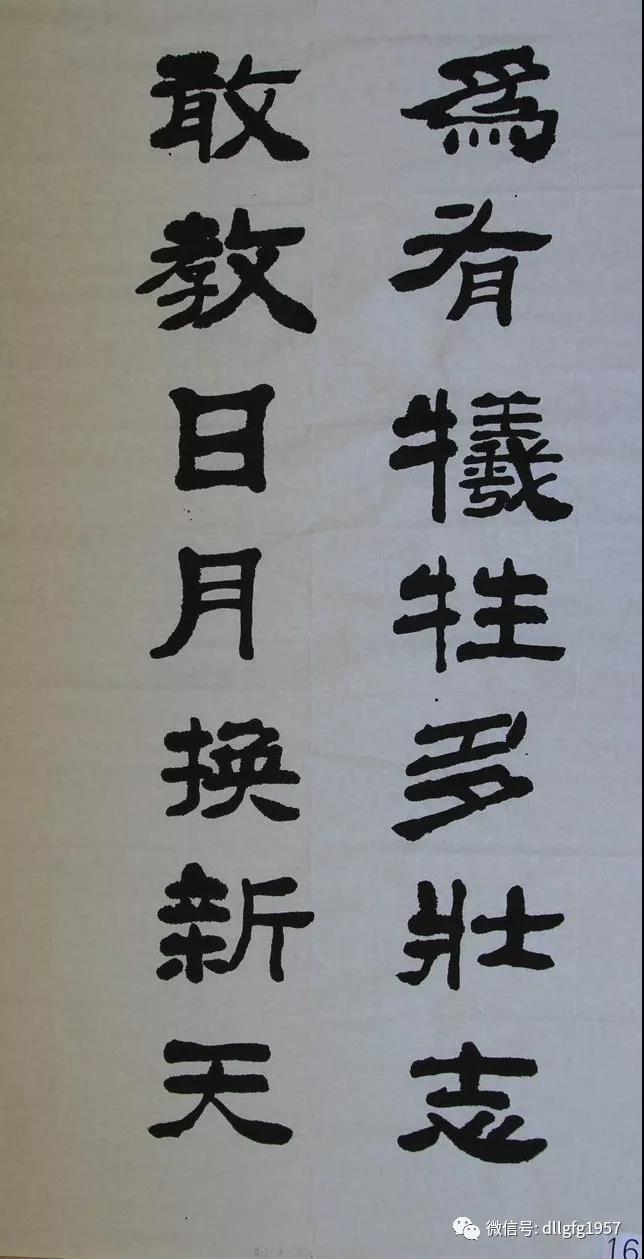 為有犧牲多壯志
敢教日月換新天
微信号: dllgfg1957
16